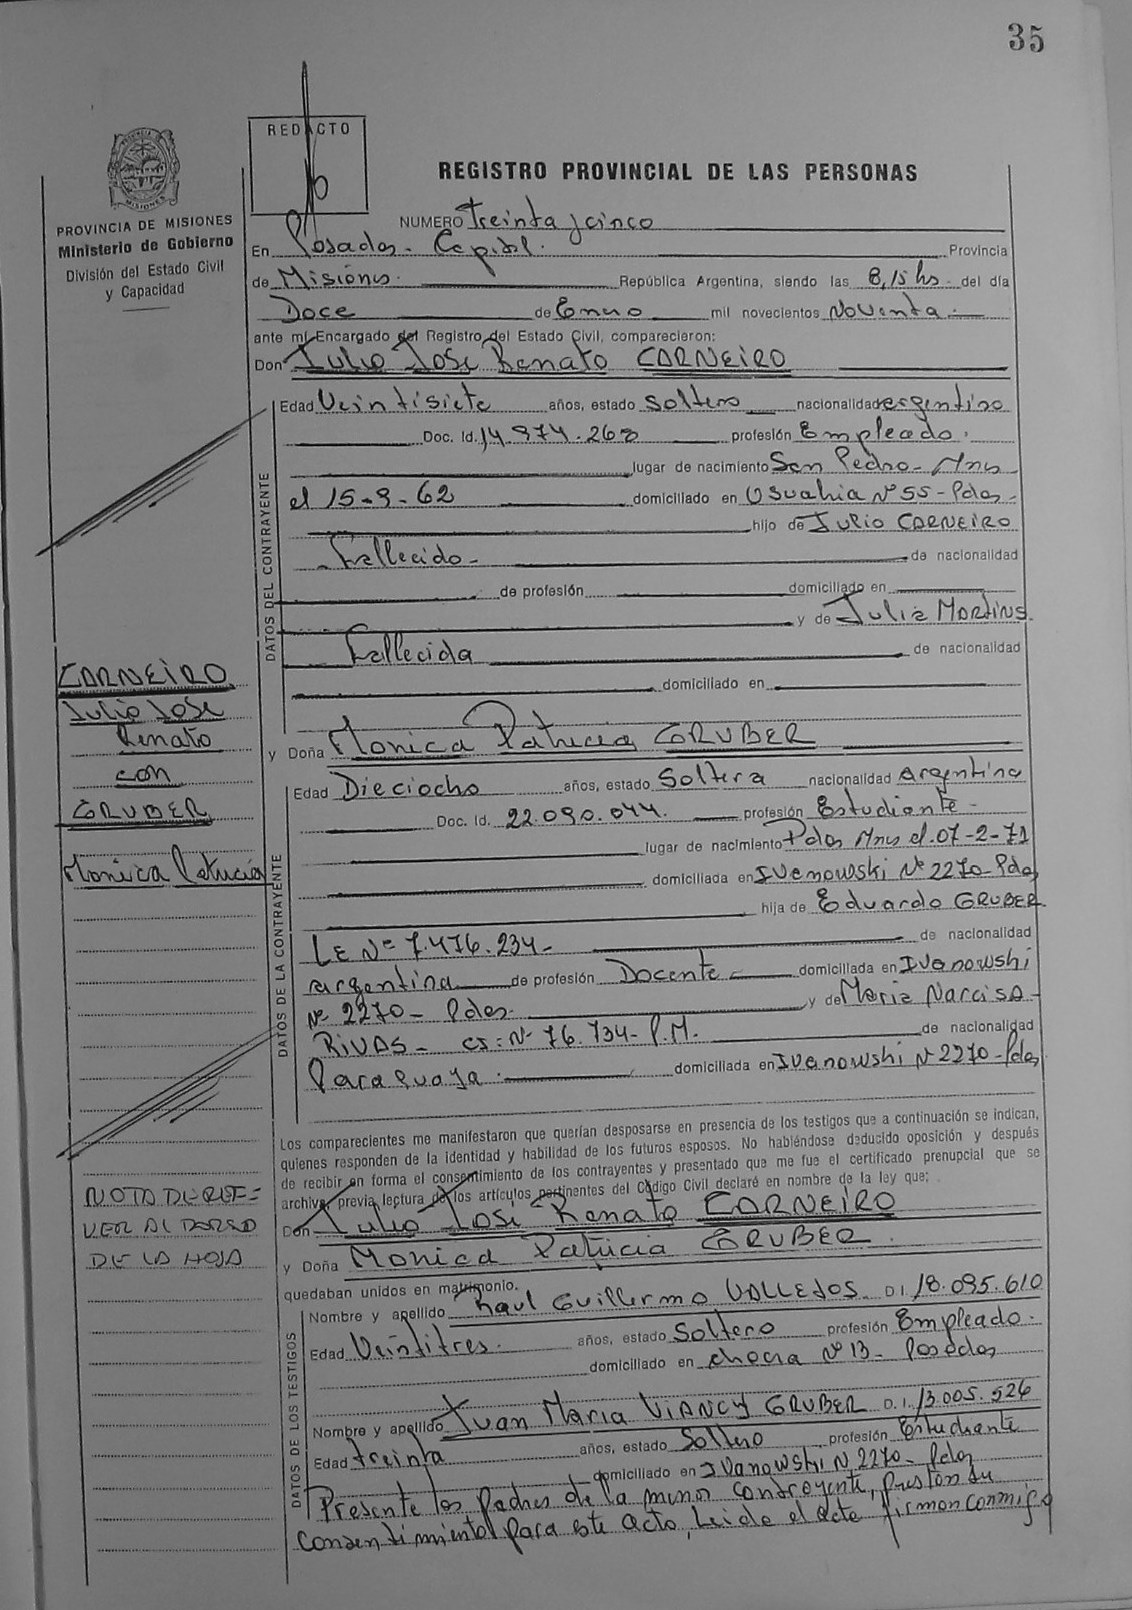 35
REDACTO
PROVINCIA DE MISIONES
Ministerio de Gobierno
División del Estado Civil
y Capacidad
REGISTRO PROVINCIAL DE LAS PERSONAS
NUMERO Treinta y cinco
En Posadas - Capital. Provincia
de Misiones. República Argentina, siendo las 8,15 hs. del día
Doce de Enero mil novecientos Noventa.
ante mí Encargado del Registro del Estado Civil, comparecieron:
Don Julio Jose Renato CARNEIRO
DATOS DEL CONTRAYENTE
Edad Veintisiete años, estado Soltero nacionalidad argentino
Doc. Id. 14.974.268 profesión Empleado.
lugar de nacimiento San Pedro - Mnes
el 15-9-62 domiciliado en Usuahia Nº 55 - Pdas -
hijo de Julio CARNEIRO
Fallecido - de nacionalidad
de profesión domiciliado en
y de Julia Martins
Fallecida de nacionalidad
domiciliado en
CARNEIRO
Julio Jose
Renato
con
GRUBER
Monica Patricia
y Doña Monica Patricia GRUBER
DATOS DE LA CONTRAYENTE
Edad Dieciocho años, estado Soltera nacionalidad Argentina
Doc. Id. 22.090.044. profesión Estudiante -
lugar de nacimiento Pdas Mnes el. 07-2-71
domiciliada en Ivanowski Nº 2270 - Pdas
hija de Eduardo GRUBER
LE Nº 7.476.234 - de nacionalidad
argentina de profesión Docente domiciliada en Ivanowski
Nº 2270 - Pdas. y de Maria Narcisa
RIVAS - CI: Nº 76.734 - P.M. de nacionalidad
Paraguaya. domiciliada en Ivanowski Nº 2270 - Pdas
Los comparecientes me manifestaron que querían desposarse en presencia de los testigos que a continuación se indican,
quienes responden de la identidad y habilidad de los futuros esposos. No habiéndose deducido oposición y después
de recibir en forma el consentimiento de los contrayentes y presentado que me fue el certificado prenupcial que se
archiva, previa lectura de los artículos pertinentes del Código Civil declaré en nombre de la ley que;
Don Julio José Renato CARNEIRO
y Doña Monica Patricia GRUBER.
quedaban unidos en matrimonio.
NOTA DE REF=
VER AL DORSO
DE LA HOJA
DATOS DE LOS TESTIGOS
Nombre y apellido Raul Guillermo VALLEJOS D.I 18.095.610
Edad Veintitres. años, estado Soltero profesión Empleado.
domiciliado en chacra Nº 13 - Posadas
Nombre y apellido Juan Maria VIANCY GRUBER D.I. 13.005.526
Edad treinta años, estado Soltero profesión Estudiante
domiciliado en Ivanowski N 2270 - Pdas
Presente los Padres de la menor contrayente, prestan su
consentimiento para este acto, Leida el acta firman conmigo